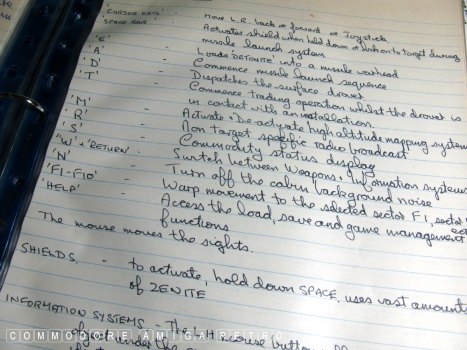 'CURSOR KEYS' - Move L.R. back or forward or Joystick
'SPACE BAR' - Activates shield when held down or links to target during
missile launch system
'A' - Loads 'DETONITE' into a missile warhead
'D' - Commence missile launch sequence
'T' - Dispatches the surface drover
Commence trading operation whilst the drover is
in contact with an installation.
'M' - Activate + De-activate high altitude mapping system
'R' - Non target specific radio broadcast
'S' - Commodity status display
'W' + 'RETURN' - Switch between Weapons + Information systems
'N' - Turn off the cabin background noise
'F1-F10' - Warp movement to the selected sector F1, sector
'HELP' - Access the load, save and game management
functions
The mouse moves the sights.
SHIELDS. - to activate, hold down SPACE, uses vast amounts
of ZENITE
INFORMATION SYSTEMS - The L.H mouse button
object under the
COMMODORE AMIGA RETRO